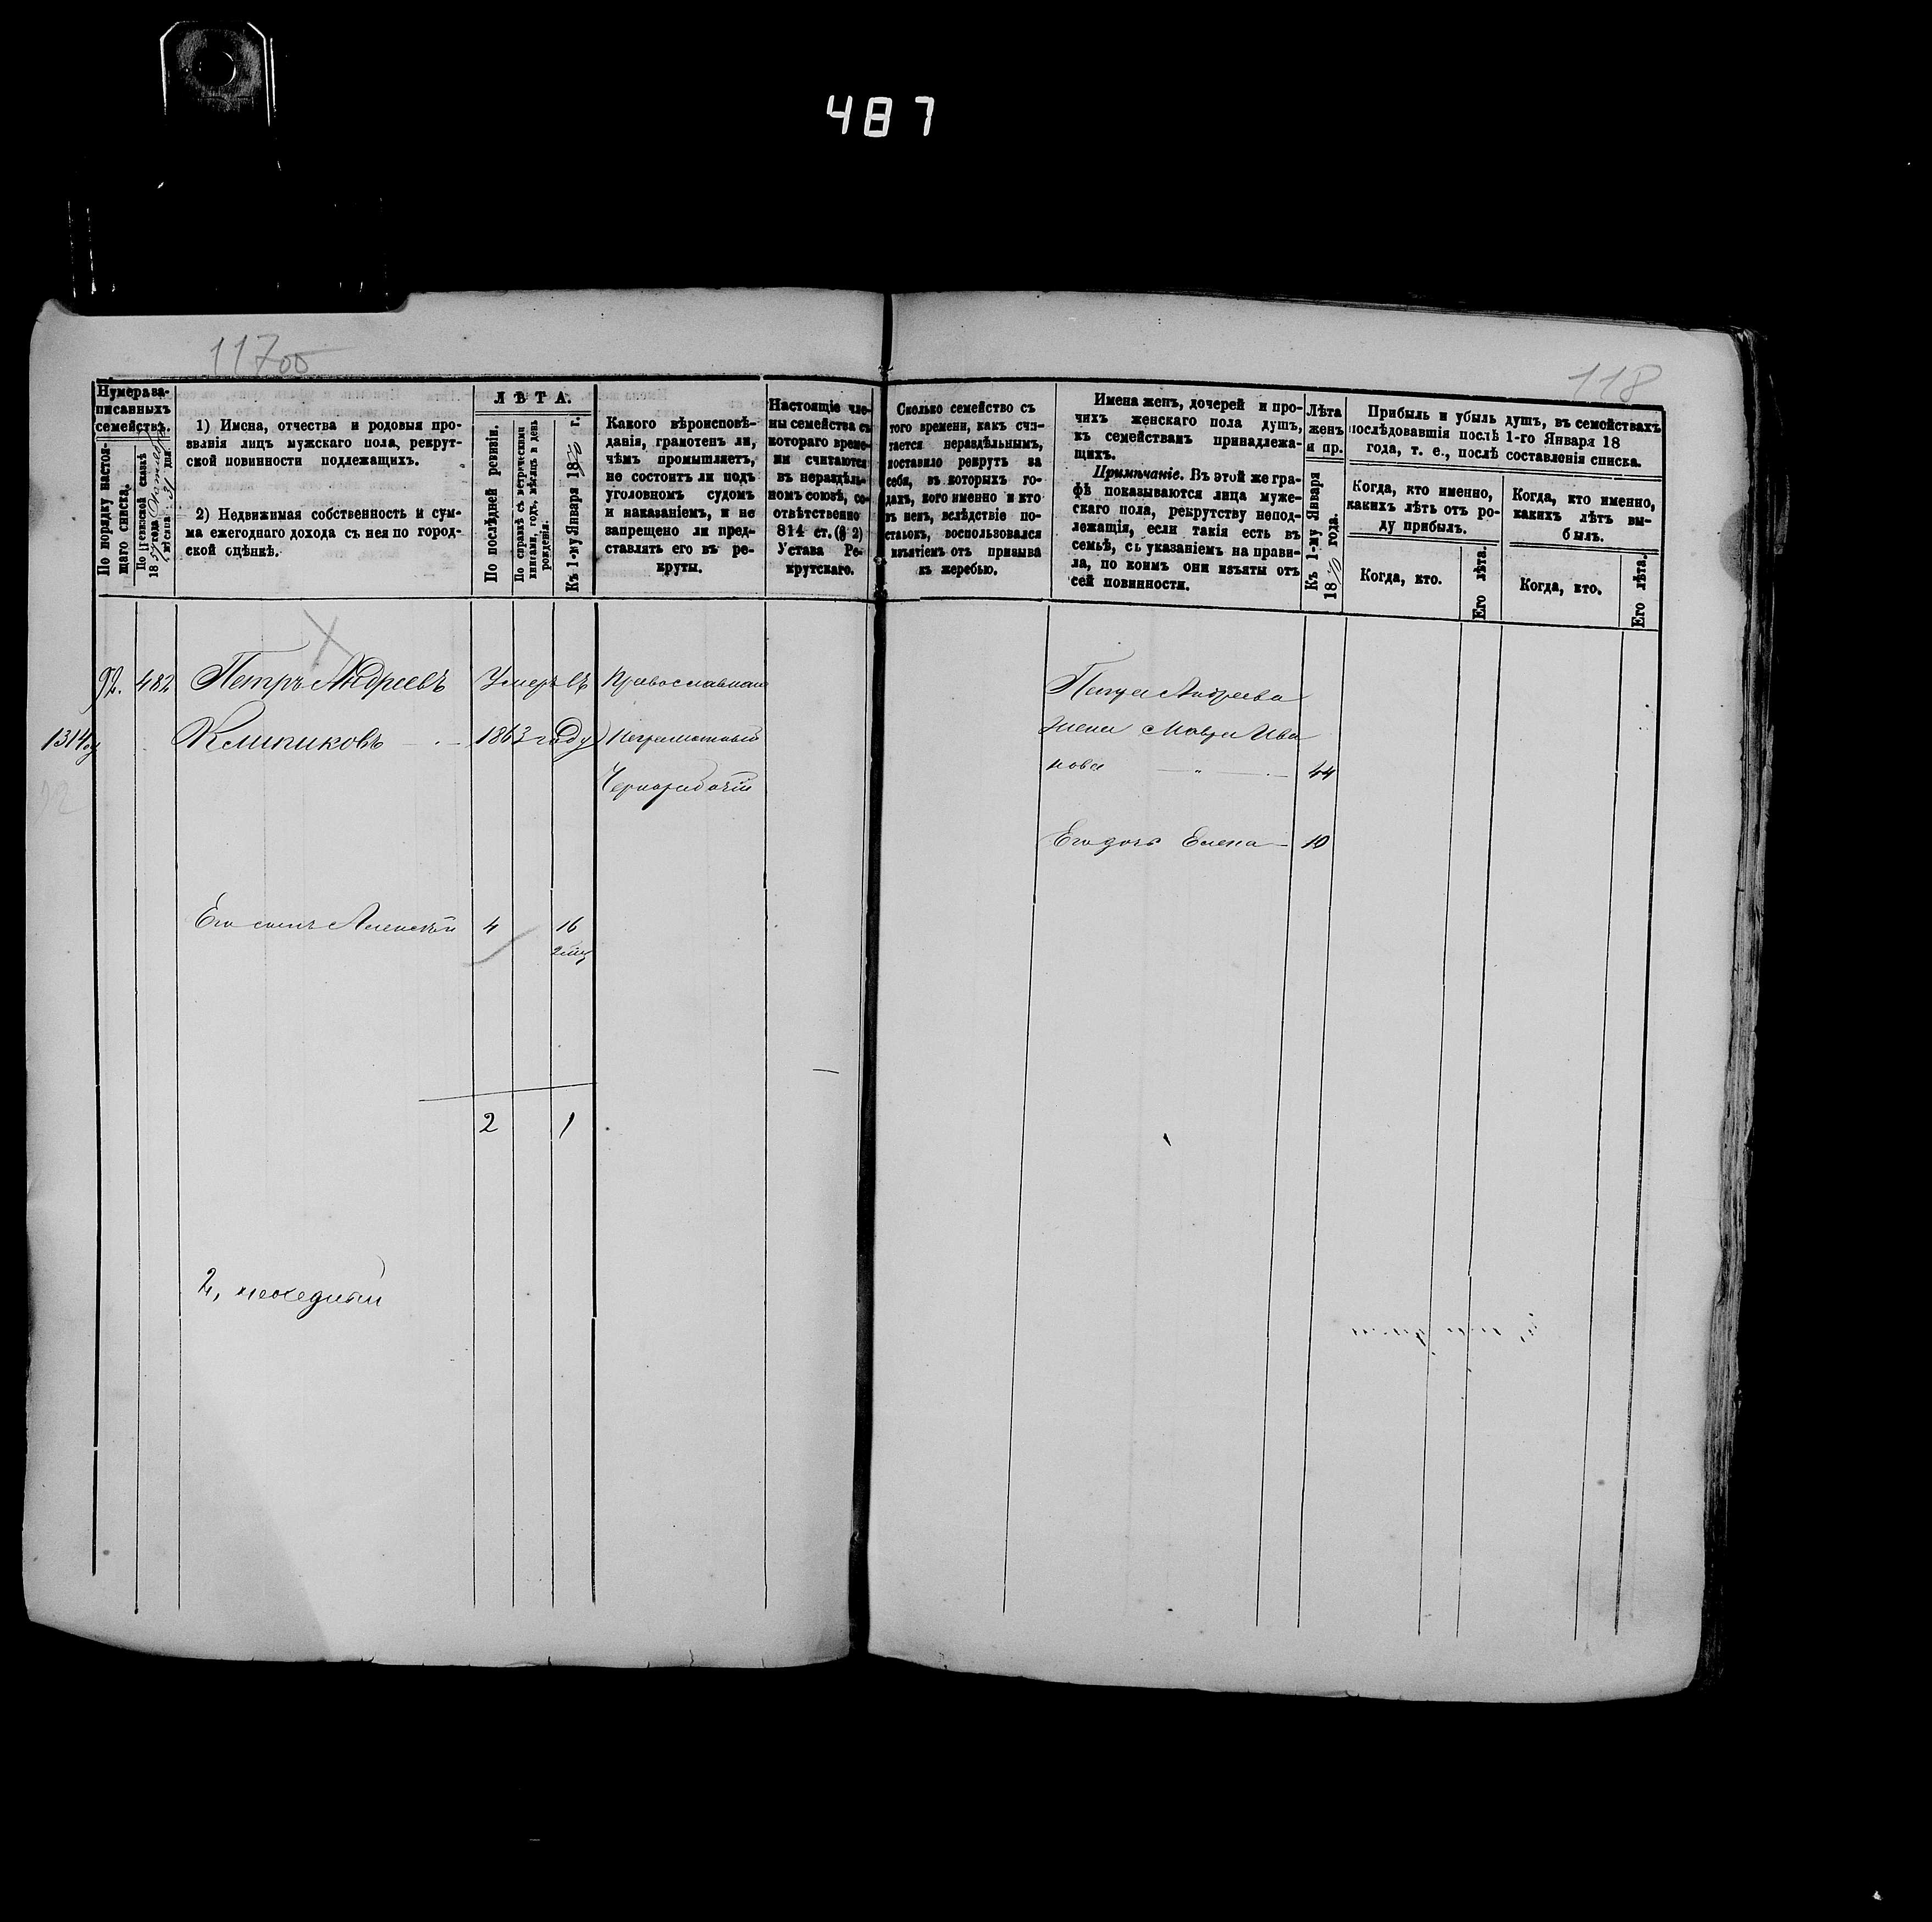 487
117об
118
Нумера за-
писанныхъ
семействъ.
По порядку настоя-
щаго списка.
По Ревизской сказкѣ
18 года
мѣсяца дня.
1) Имена, отчества и родовыя про-
званія лицъ мужскаго пола, рекрут-
ской повинности подлежащихъ.
2) Недвижимая собственность и сум-
ма ежегоднаго дохода съ нея по город-
ской оцѣнкѣ.
ЛѢТА.
По послѣдней ревизіи.
По справкѣ съ метрическими
книгами, годъ, мѣсяцъ и день
рожденія.
Къ 1-му Января 1870 г.
Какого вѣроисповѣ-
данія, грамотенъ ли,
чѣмъ промышляетъ,
не состоитъ ли подъ
уголовномъ судомъ
и наказаніемъ, и не
запрещено ли пред-
ставлять его въ ре-
круты.
Настоящіе чле-
ны семейства съ
котораго време-
ни считаются
въ нераздѣль-
номъ союзѣ, со-
отвѣтственно
814 ст. (§ 2)
Устава Ре-
крутскаго.
Сколько семейство съ
того времени, какъ счи-
тается нераздѣльнымъ,
поставило рекрутъ за
себя, въ которыхъ го-
дахъ, кого именно и кто
въ немъ, вслѣдствіе по-
ставокъ, воспользовался
изъятіемъ отъ призыва
къ жеребью.
Имена женъ, дочерей и про-
чихъ женскаго пола душъ,
къ семействамъ принадлежа-
щихъ.
Примѣчаніе. Въ этой же гра-
фѣ показываются лица муже-
скаго пола, рекрутству непод-
лежащія, если такія есть въ
семьѣ, съ указаніемъ на прави-
ла, по коимъ они изъяты отъ
сей повинности.
Лѣта
женъ
и пр.
Къ 1-му Января
1870 года.
Прибыль и убыль душъ, въ семействахъ
послѣдовавшія послѣ 1-го Января 18
года, т. е., послѣ составленія списка.
Когда, кто именно,
какихъ лѣтъ отъ ро-
ду прибылъ.
Когда, кто.
Его лѣта.
Когда, кто именно,
какихъ лѣтъ вы-
былъ.
Когда, кто.
Его лѣта.
92. 482 Петръ Андреевъ Умеръ въ Православнаго
1314 Климиковъ 1863 году Неграмотный
Чернорабочій
92
Его сынъ Алексѣй 4 16
2 мц
2 1
2, неоседлый
Петра Андреева
жена Мавра Ива
нова 44
Его дочь Елена 10